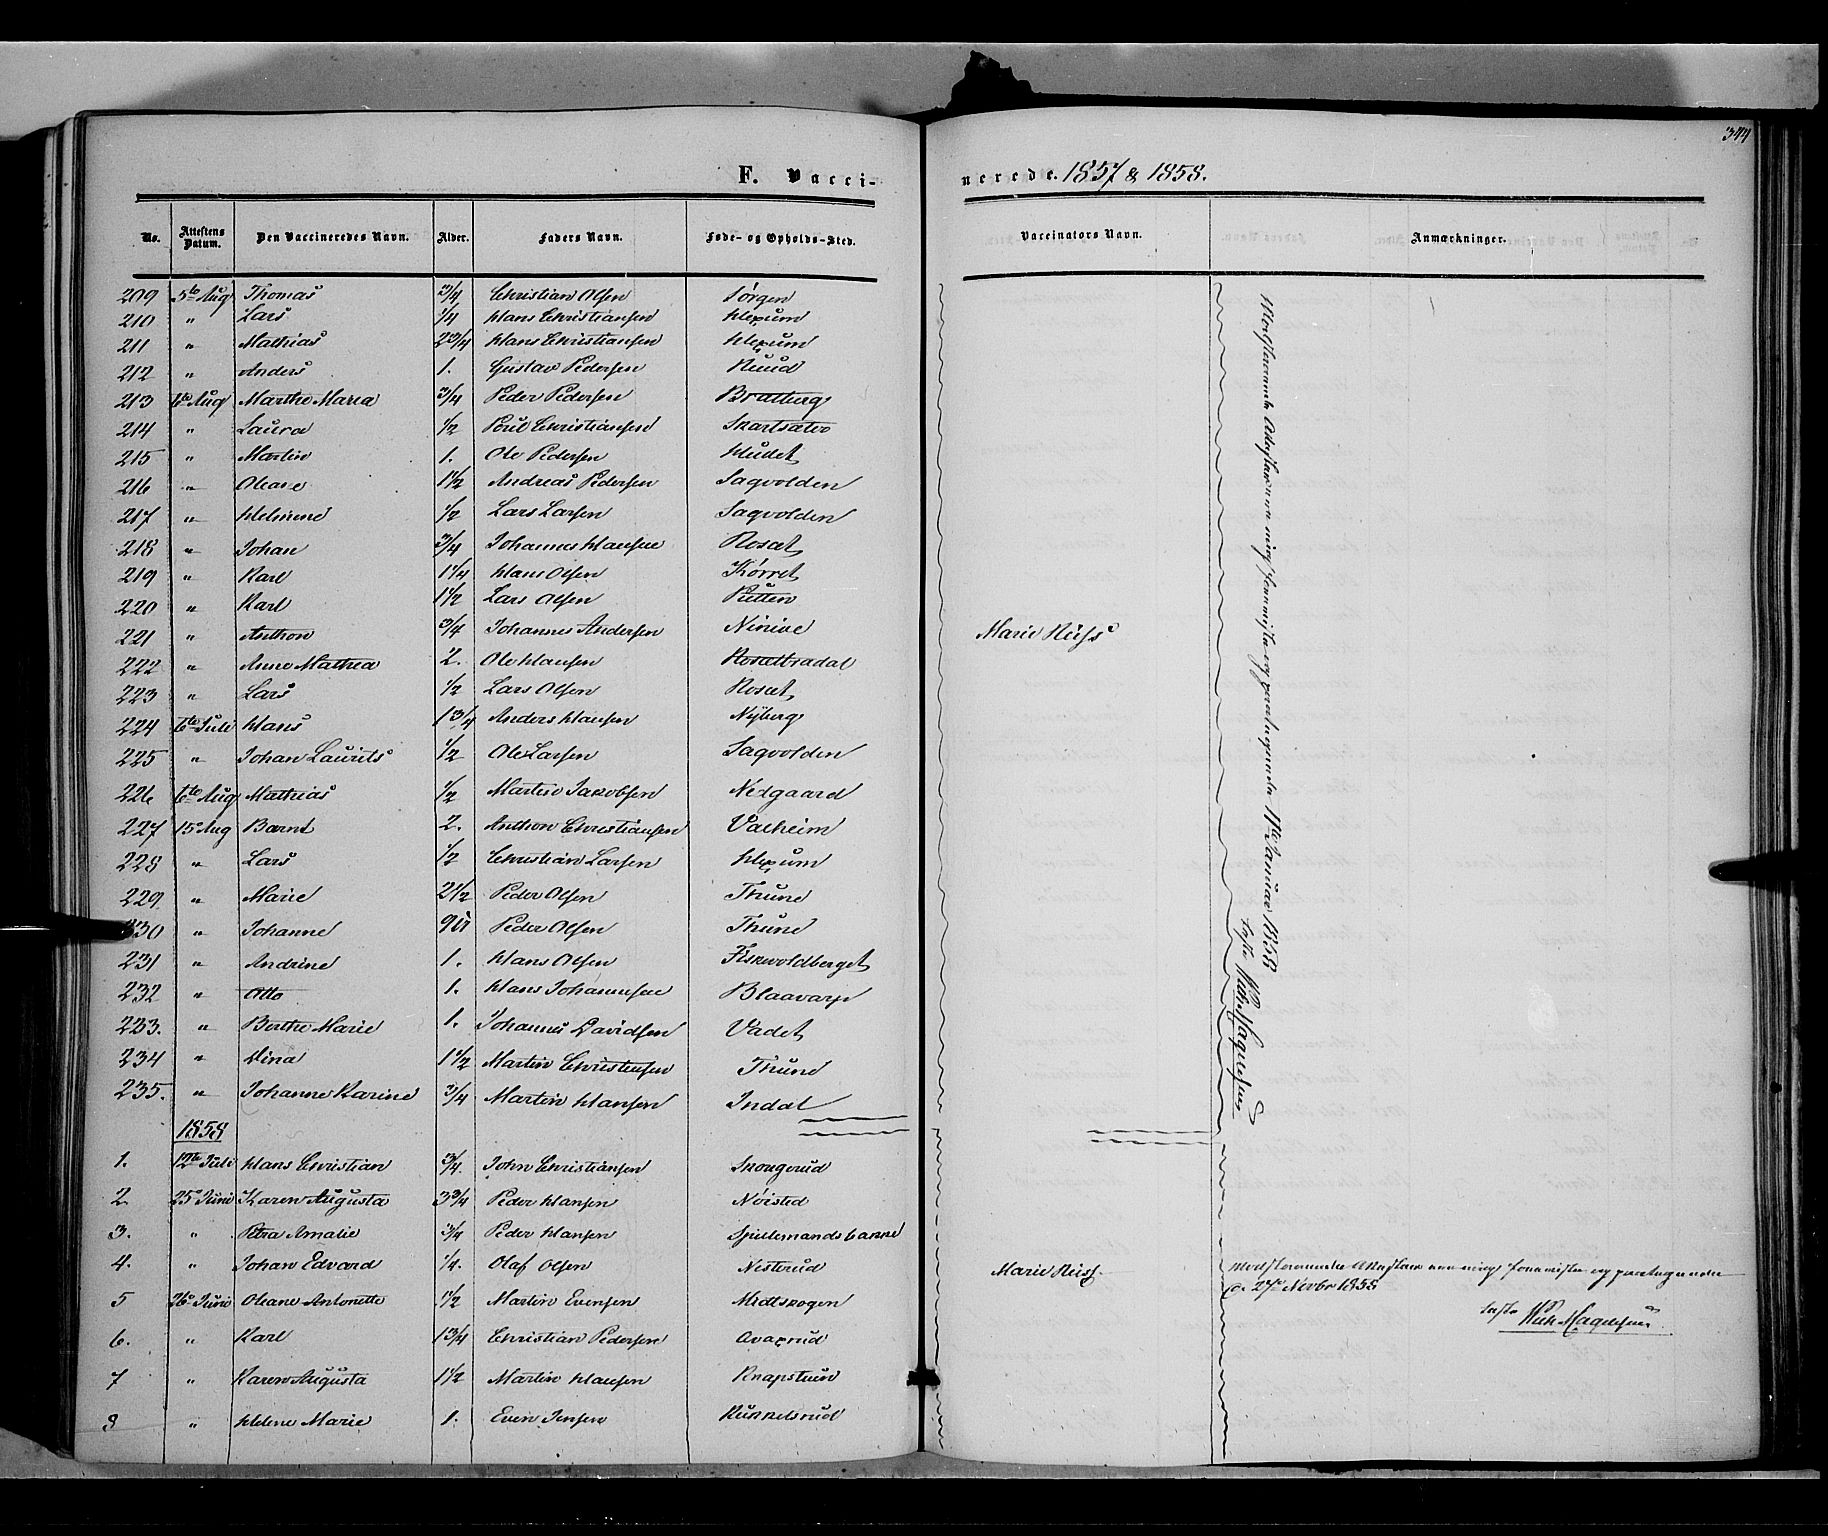 344
F. Vacci-
nerede. 1857 & 1858.
No. Attestens Datum. Den Vaccineredes Navn. Alder. Faders Navn. Føde- og Opholds-Sted. Vaccinators Navn. Anmærkninger.
209 5te Aug Thomas 3/4 Christian Olsen Sørgen
210 " Lars 1/4 Hans Christiansen Hexum
211 " Mathias 2 3/4 Hans Christiansen Hexum
212 " Anders 1. Gustav Pedersen Ruud
213 6te Aug Marthe Maria 3/4 Peder Pedersen Bratberg
214 " Laura 1/2 Poul Christiansen Skartsæter
215 " Martin 1. Ole Pedersen Hudet
216 " Oleane 1 1/2 Andreas Pedersen Sagvolden
217 " Helmine 1/2 Lars Larsen Sagvolden
218 " Johan 3/4 Johannes Hansen Rosæt
219 " Karl 1 1/4 Hans Olsen Kørret
220 " Karl 1 1/2 Lars Olsen Putten
221 " Anthon 3/4 Johannes Andersen Ninive Marie Riiss
222 " Anne Mathea 2. Ole Hansen Rosætbradal
223 " Lars 1/2 Lars Olsen Rosæt
224 6te Juli Hans 1 3/4 Anders Hansen Nyberg
225 " Johan Laurits 1/2 Ole Larsen Sagvolden
226 6te Aug Mathias 1/2 Martin Jakobsen Nedgaard
227 15 Aug Bernt 2. Anthon Christiansen Valheim
228 " Lars 1/2 Christian Larsen Hexum
229 " Marie 2 1/2 Peder Olsen Thune
230 " Johanne 9 Peder Olsen Thune
231 " Andrine 1. Hans Olsen Fiskvoldberget
232 " Otto 1. Hans Johannesen Blaavarp
233. " Berthe Marie 1. Johannes Davidsen Vadet
234 " Dina 1 1/2 Martin Christensen Thune
235. " Johanne Karine 3/4 Martin Hansen Indal
11te Januar 1858
1858
1. 12te Juli Hans Christian 3/4. John Christiansen Skougerud
2. 25 Juni Karen Augusta 3 3/4 Peder Hansen Nøisted
3. " Petra Amalie 3/4 Peder Hansen Spillemandsbakke
4. " Johan Edvard 1/4. Olaf Olsen Nesterud Marie Riiss
27 Novbr 1858
5 26 Juni Oleane Antonette 1 1/2 Martin Evensen Midtskogen
6. " Karl 1 3/4 Christian Pedersen
7 " Karen Augusta 1 1/2 Martin Hansen Knapstuen
8 " Helene Marie 1. Even Jensen Kukkelsrud